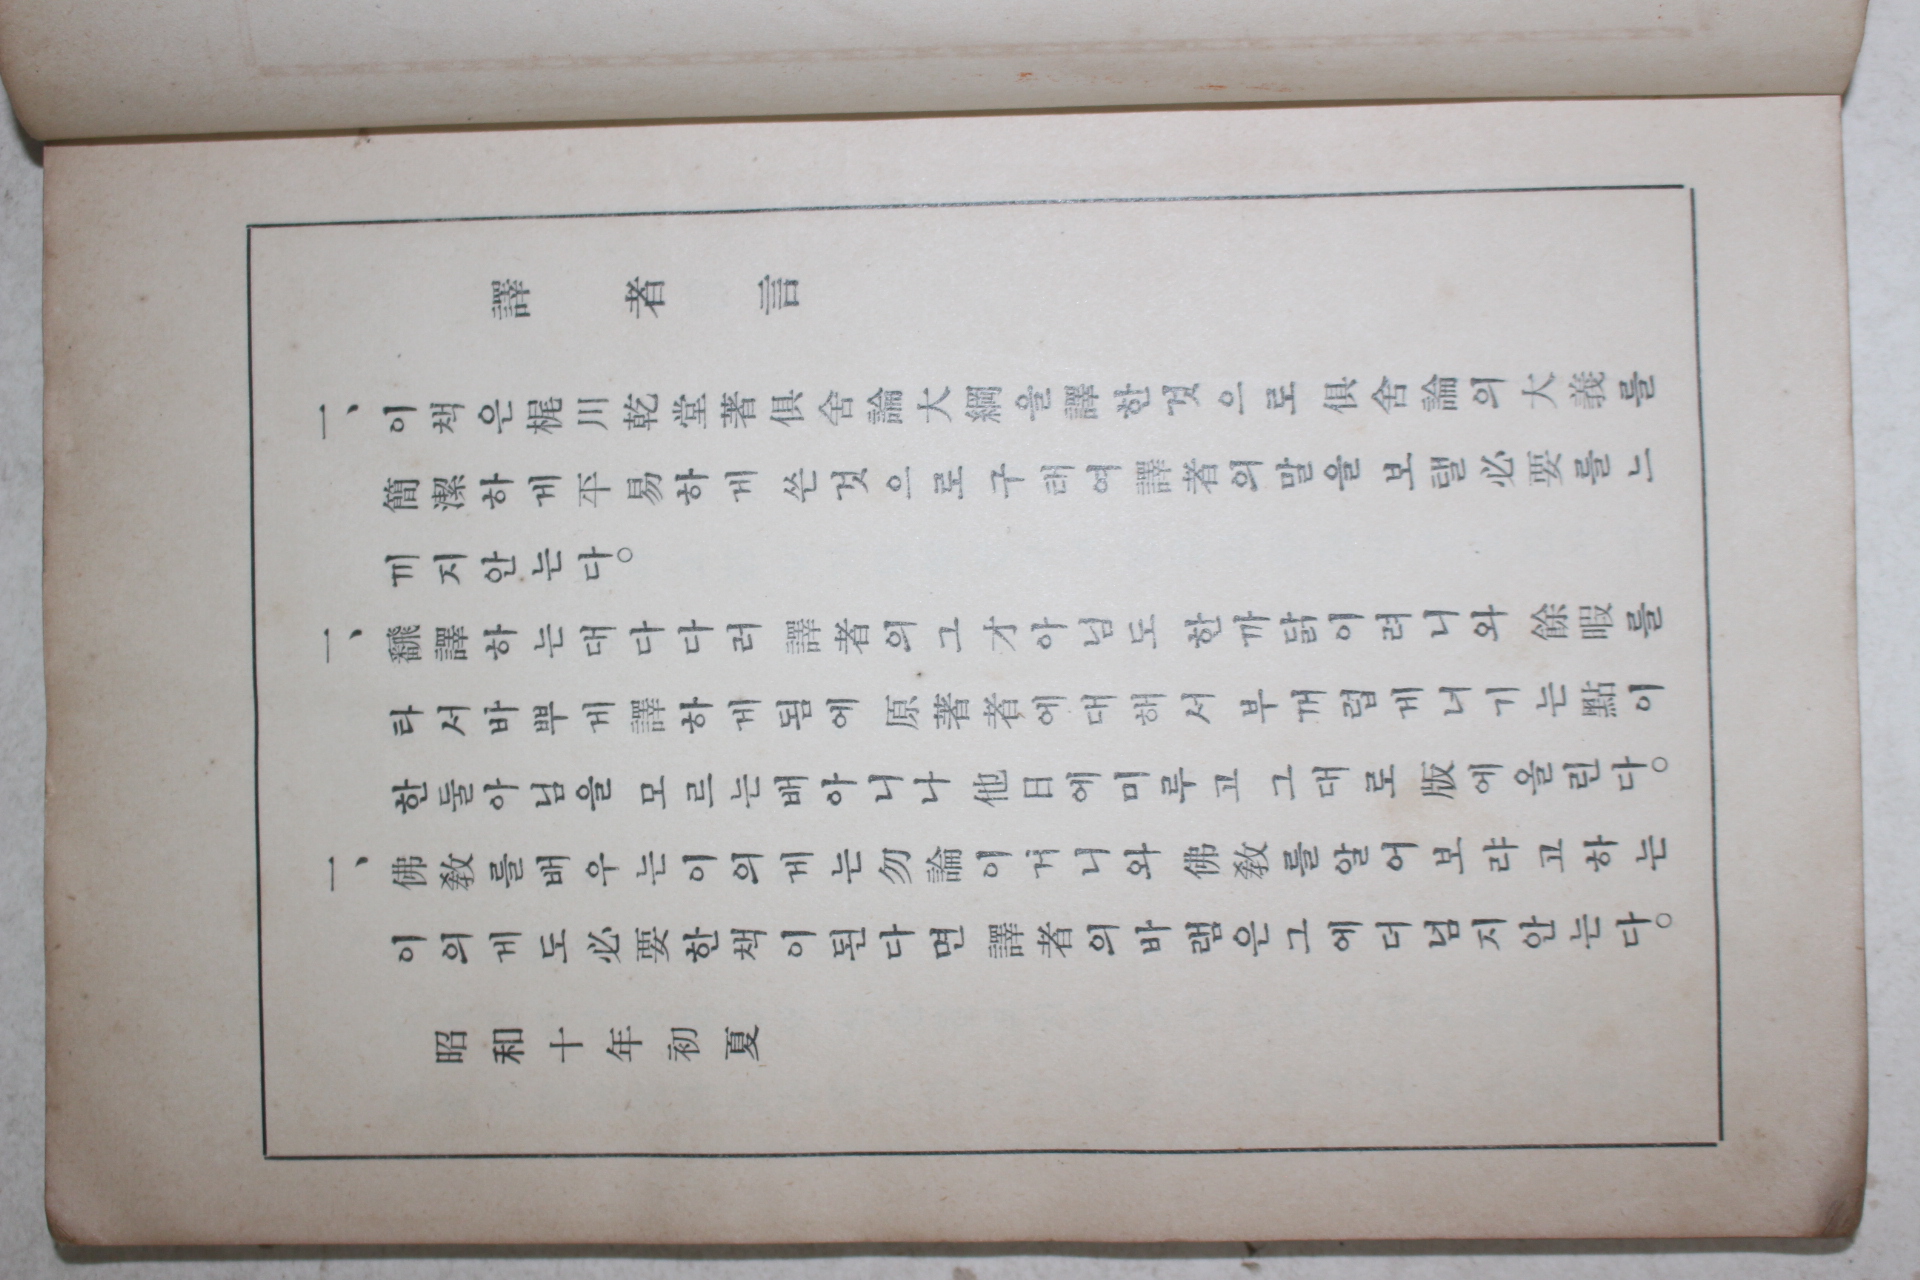 譯者言
一、이책은梶川乾堂著俱舍論大綱을譯한것으로俱舍論의大義를
簡潔하게平易하게쓴것으로구태여譯者의말을보탤必要를느
끼지안는다。
一、飜譯하는대다다러譯者의그才아님도한까닭이려니와餘暇를
타서바쁘게譯하게됨에原著者에대해서부끄럽게녀기는點이
한둘아님을모르는배아니나他日에미루고그대로版에올린다。
一、佛敎를배우는이의게는勿論이거니와佛敎를알어보랴고하는
이의게도必要한책이된다면譯者의바램은그에더넘지안는다。
昭和十年初夏